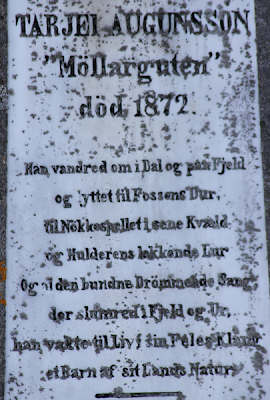 TARJEI AUGUNSSON
"Möllarguten"
död 1872.
Han vandred om i Dal og paa Fjeld
og lyttet til Fossens Dur,
til Nökkespellet i sene Kvæld
og Hulderens lokkende Lur
Og al den bundne Drömmende Sang,
der slumred i Fjeld og Ur,
han vakte til Liv i sin Feles Klang
et Barn af sit Lands Natur